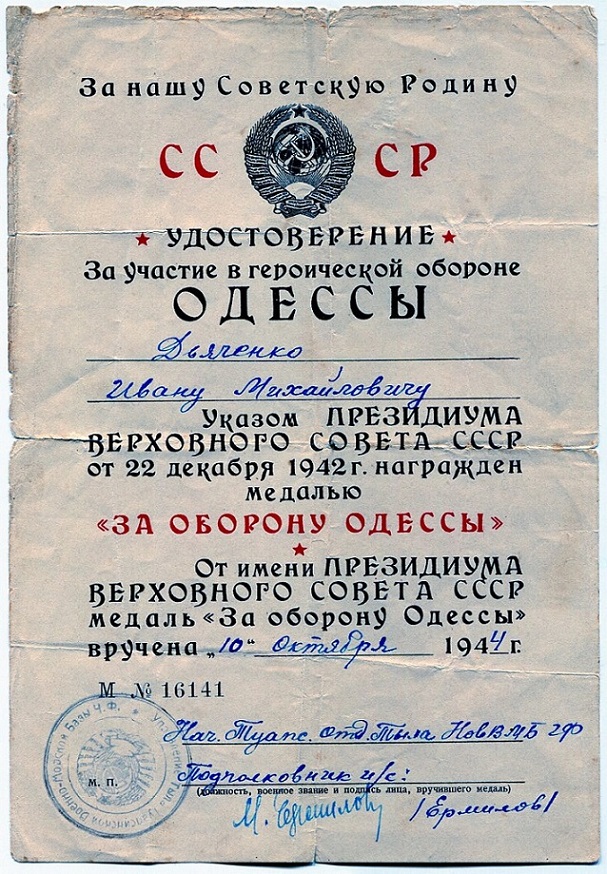 За нашу Советскую Родину
СССР
УДОСТОВЕРЕНИЕ
За участие в героической обороне
ОДЕССЫ
Дьяченко
Ивану Михайловичу
Указом ПРЕЗИДИУМА
ВЕРХОВНОГО СОВЕТА СССР
от 22 декабря 1942 г. награжден
медалью
«ЗА ОБОРОНУ ОДЕССЫ»
От имени ПРЕЗИДИУМА
ВЕРХОВНОГО СОВЕТА СССР
медаль «За оборону Одессы»
вручена „10" октября 1944 г.
М № 16141
Нач. Туапс. отд. Тыла НовВМБ ЧФ
М. П.
Подполковник и/с:
(должность, военное звание и подпись лица, вручившего медаль)
М. Ермилов /Ермилов/